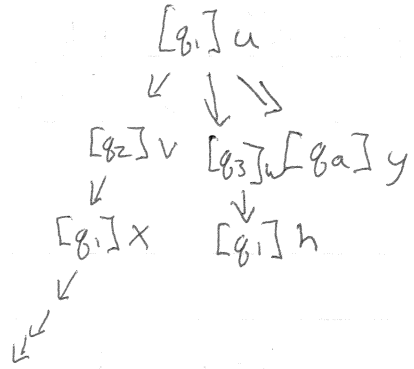 [q₁] u
[q₂] v [q₃] w [qa] y
[q₁] x [q₁] h